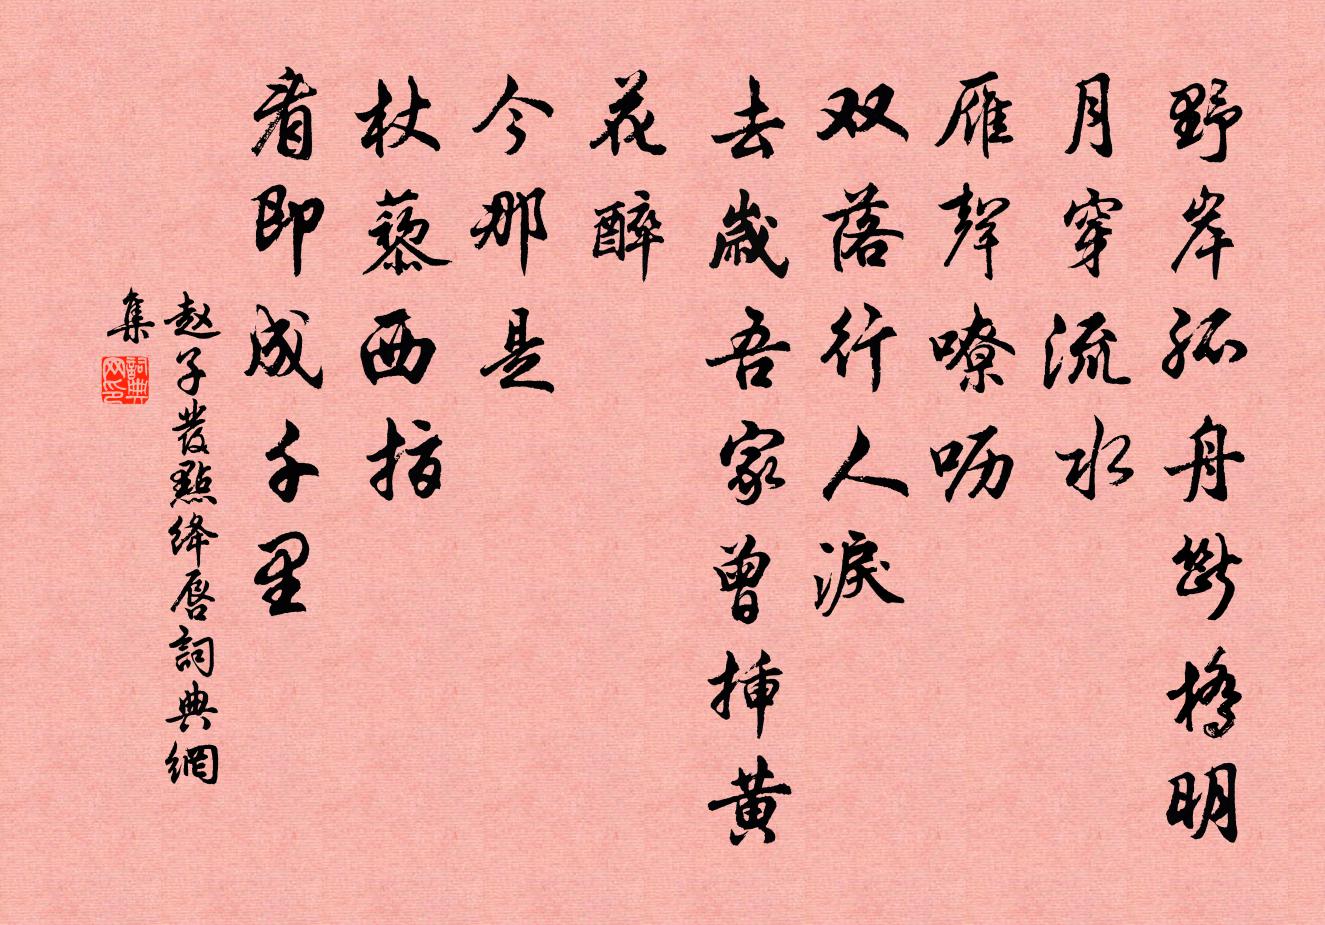 野岸孤舟斷橋明
月穿流水
雁聲嘹呖
双落行人淚
去歲吾家曾挿黄
花醉
今那是
杖藜西指
看即成千里
赵子發點绛唇詞典網
集
詞典网印